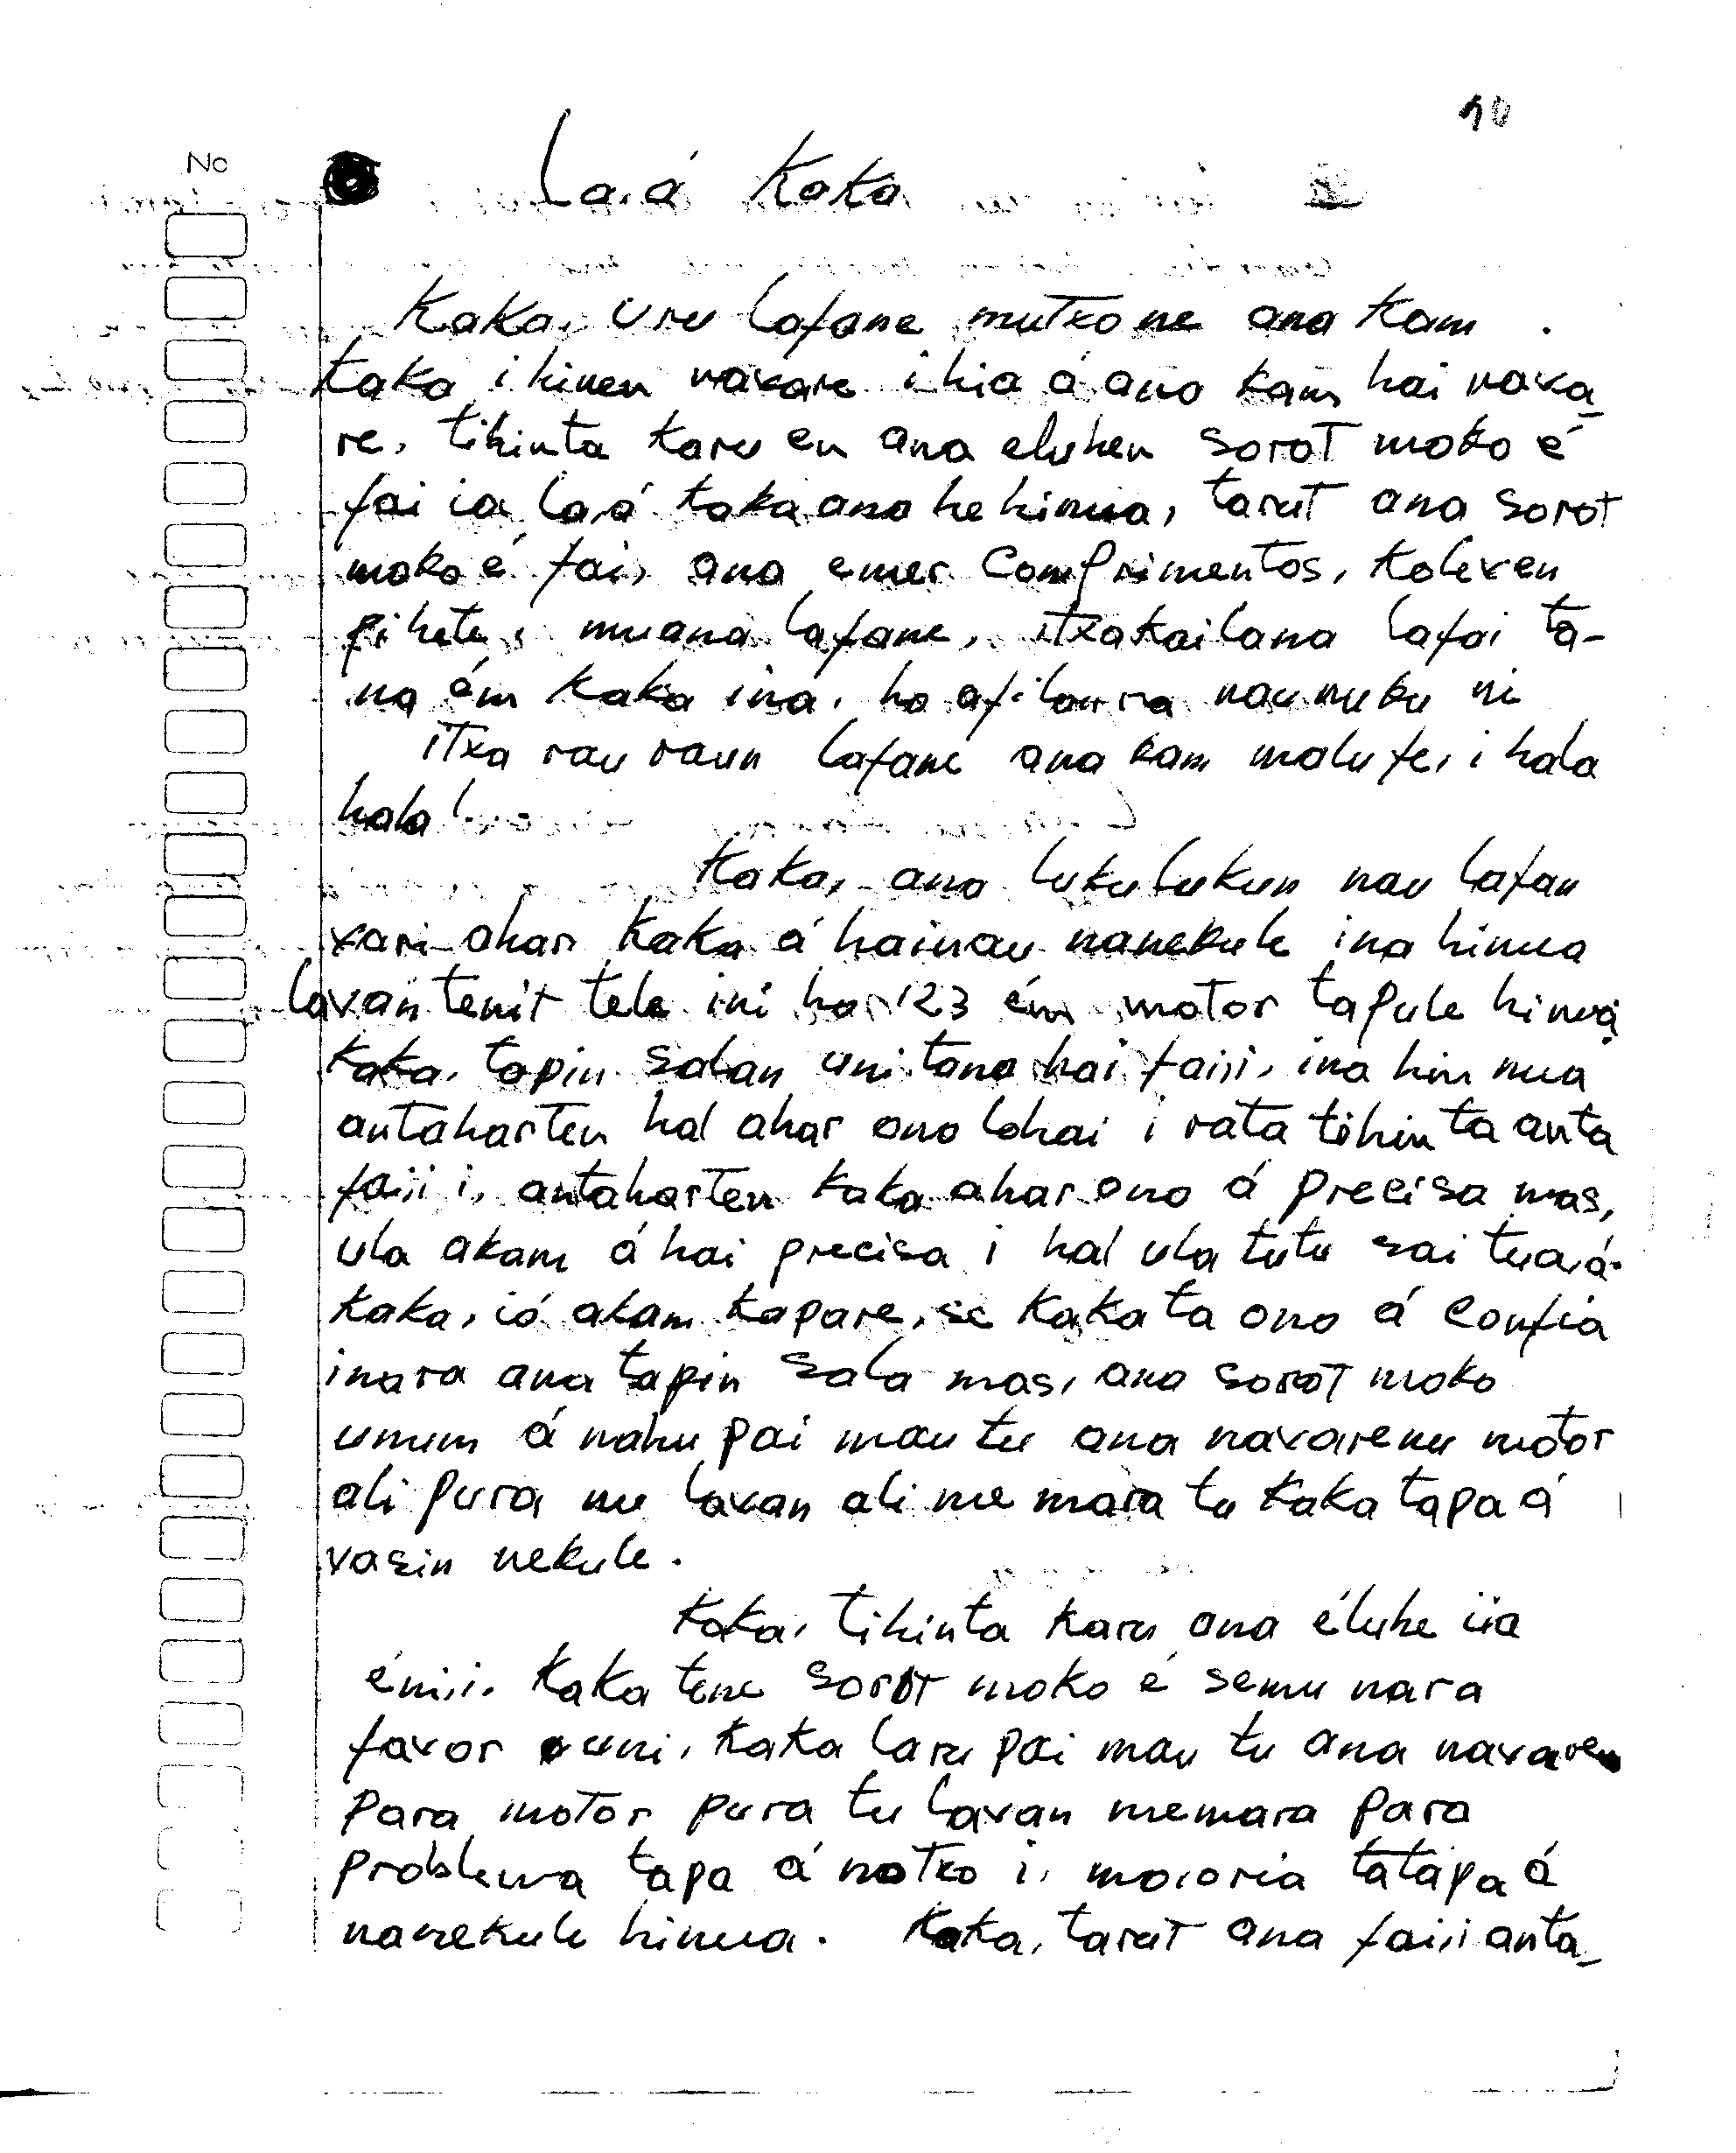 10
No
Laiá Kaka
Kaka, uru lafane mutxo ne ana kam
kaka ihinen navare ihia á ano kam hai nava-
re, tihinta karu en ana eluhen sorot moko é
fai ia laiá kaka ana he hinua, tarut ana sorot
moko é fai, ana emer Comprimentos, koleven
pihete, muana lafane, itxakailana lafai ta-
na ém kaka ina. ho afilourra nau nuku ni
itxa rau raun lafane ana kam malu fe, i hala
hala!
Kaka, ana lukulukun nau lafan
vari ahar kaka á hainau nanekule ina hinua
lavan tenit tele ini ha 123 ém motor tapule hinua
kaka, tapin salan uni tana hai faiii, ina hin nua
antaharten hal ahar ono lohai i rata tihinta anta
faiii i, antaharten kaka ahar ono á precisa mas,
ula akam á hai precisa i hal ula tutu sai tuaiá.
Kaka, ió akam kapare, se kaka ta ono á confia
inara ana tapin sala mas, ana sorot moko
umum á nahu pai mau tu ana navarenu motor
ali pura nu lavan ali me mara tu kaka tapa á
vasin nekule.
Kaka, tihinta karu ana éluhe iia
éniii. Kaka tene sorot moko é semu nara
favor uuni, kaka laru pai mau tu ana navaren
para motor pura tu lavan memara para
problema tapa á notxo i, moioria tatapa á
nanekule hinua. Kaka, tarut ana faiii anta-